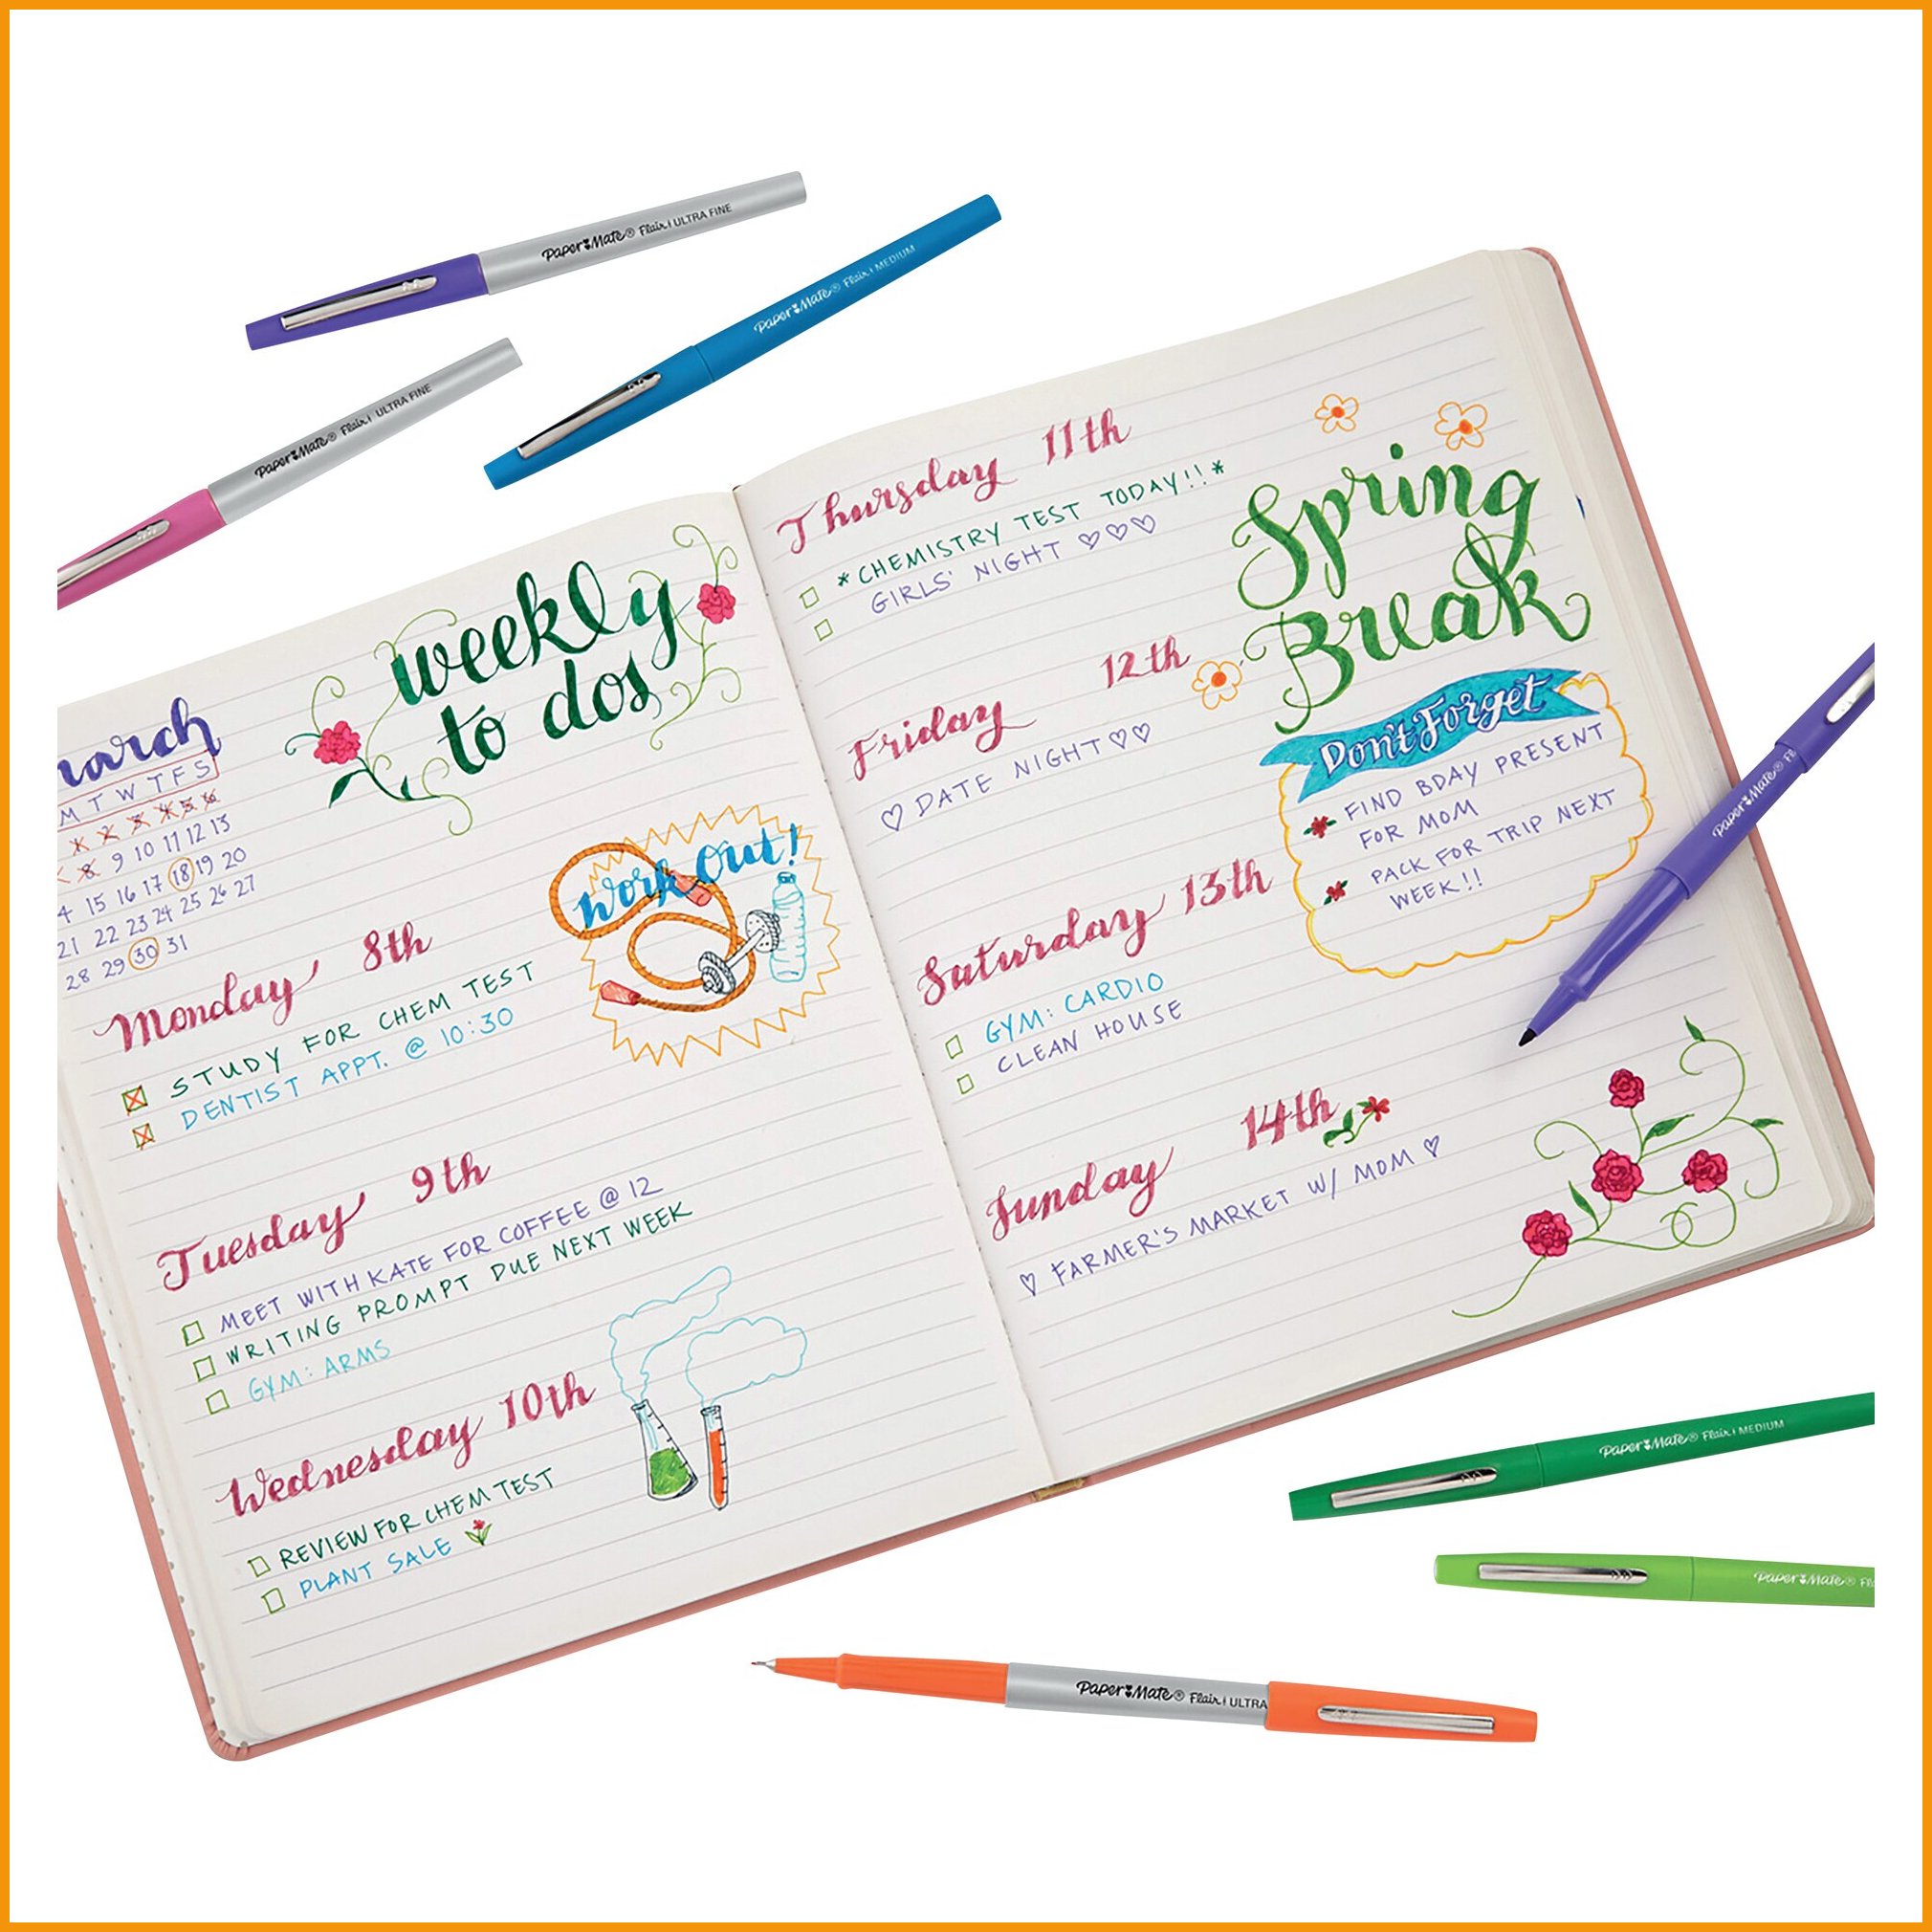 Paper Mate® Flair | ULTRA FINE
Paper Mate® Flair | MEDIUM
Paper Mate® Flair | ULTRA FINE
weekly
to dos
M T W T F S
9 10 11 12 13
15 16 17 18 19 20
21 22 23 24 25 26 27
28 29 30 31
Work Out!
Monday 8th
STUDY FOR CHEM TEST
DENTIST APPT. @ 10:30
Tuesday 9th
MEET WITH KATE FOR COFFEE @ 12
WRITING PROMPT DUE NEXT WEEK
GYM: ARMS
Wednesday 10th
REVIEW FOR CHEM TEST
PLANT SALE
Thursday 11th
*CHEMISTRY TEST TODAY!!*
GIRLS' NIGHT ♡♡♡
Spring
Break
Friday 12th
♡ DATE NIGHT ♡♡
Don't Forget
FIND BDAY PRESENT
FOR MOM
PACK FOR TRIP NEXT
WEEK!!
Saturday 13th
GYM: CARDIO
CLEAN HOUSE
Sunday 14th
♡ FARMER'S MARKET W/ MOM ♡
Paper Mate®
Paper Mate® Flair | MEDIUM
Paper Mate®
Paper Mate® Flair | ULTRA